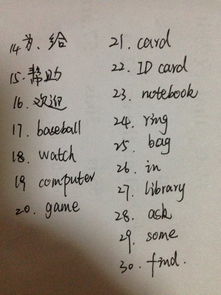 14. 为、给
15. 帮助
16. 欢迎
17. baseball
18. watch
19 computer
20. game
21. card
22. ID card
23. notebook
24. ring
25. bag
26. in
27. library
28. ask
29. some
30. find.